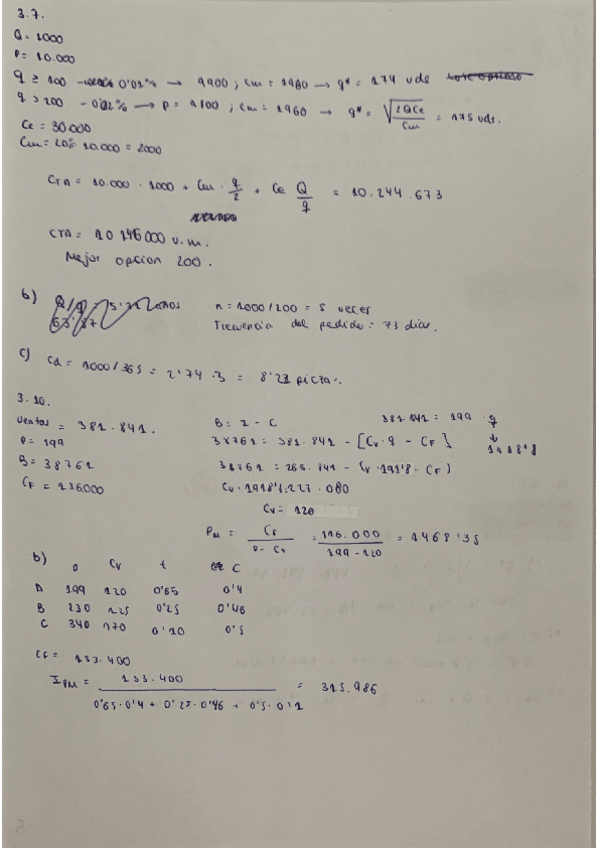 3.7.
Q = 1000
P = 10.000
q ≥ 100 - 0'01% → 9900 ; Cm = 1980 → q* = 174 uds
q > 200 - 0'02% → P = 9800 ; Cm = 1960 → q* = √(2QCe/Cm) = 175 uds.
Ce = 30.000
Cm = 20% 10.000 = 2000
CTA = 10.000 · 1000 + Cm · q/2 + Ce Q/q = 10.244.673
CTA = 10 146000 u.m.
Mejor opcion 200.
b) n = 1000/200 = 5 veces
Frecuencia del pedido = 73 dias.
c) Cd = 1000/365 = 2'74 · 3 = 8'22
3.10.
Ventas = 381.841. B = I - C 381.841 = 199 · q
P = 199 38761 = 381.841 - [Cv · q - CF] 1918'8
B = 38761 38761 = 265.841 - Cv · 1918'8 - CF)
CF = 116.000 Cv · 1918'8 = 227.080
Cv = 120
PM = CF / P - Cv = 116.000 / 199 - 120 = 1468'35
b) P Cv t C
A 199 120 0'65 0'4
B 230 125 0'25 0'46
C 340 170 0'10 0'5
CF = 133.400
IPM = 133.400 / 0'65·0'4 + 0'25·0'46 + 0'5·0'1 = 313.986